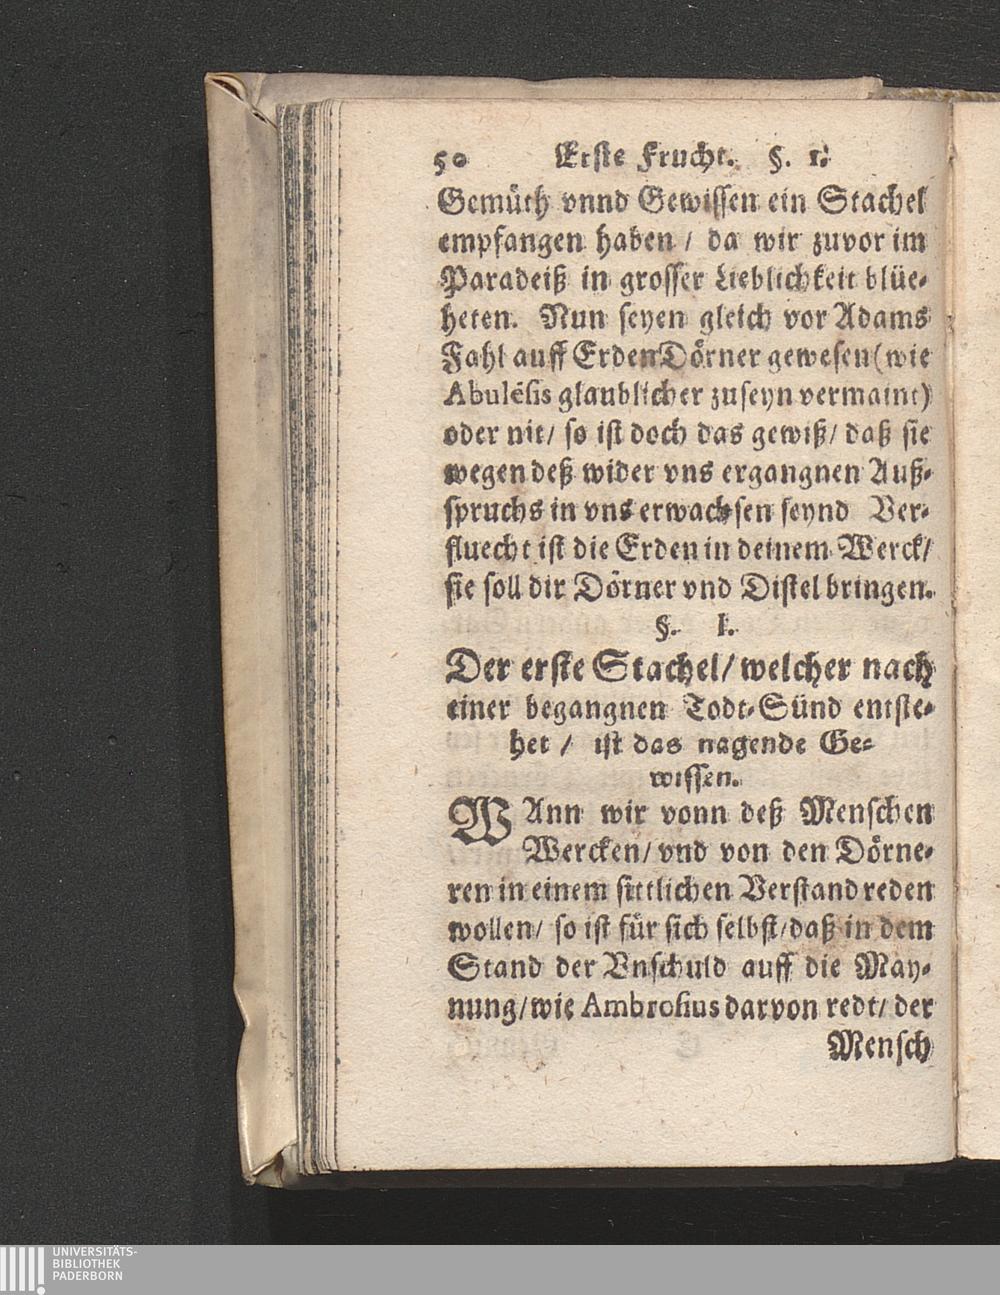 50 Erste Frucht. §. 1.
Gemüth vnnd Gewissen ein Stachel
empfangen haben / da wir zuvor im
Paradeiß in grosser Lieblichkeit blüe-
heten. Nun seyen gleich vor Adams
Fahl auff Erden Dörner gewesen (wie
Abulésis glaublicher zuseyn vermaint)
oder nit / so ist doch das gewiß / daß sie
wegen deß wider vns ergangnen Auß-
spruchs in vns erwachsen seynd Ver-
fluecht ist die Erden in deinem Werck /
sie soll dir Dörner vnd Distel bringen.
§. I.
Der erste Stachel / welcher nach
einer begangnen Todt-Sünd entste-
het / ist das nagende Ge-
wissen.
WAnn wir vonn deß Menschen
Wercken / vnd von den Dörne-
ren in einem sittlichen Verstand reden
wollen / so ist für sich selbst / daß in dem
Stand der Vnschuld auff die May-
nung / wie Ambrosius darvon redt / der
Mensch
UNIVERSITÄTS-
BIBLIOTHEK
PADERBORN